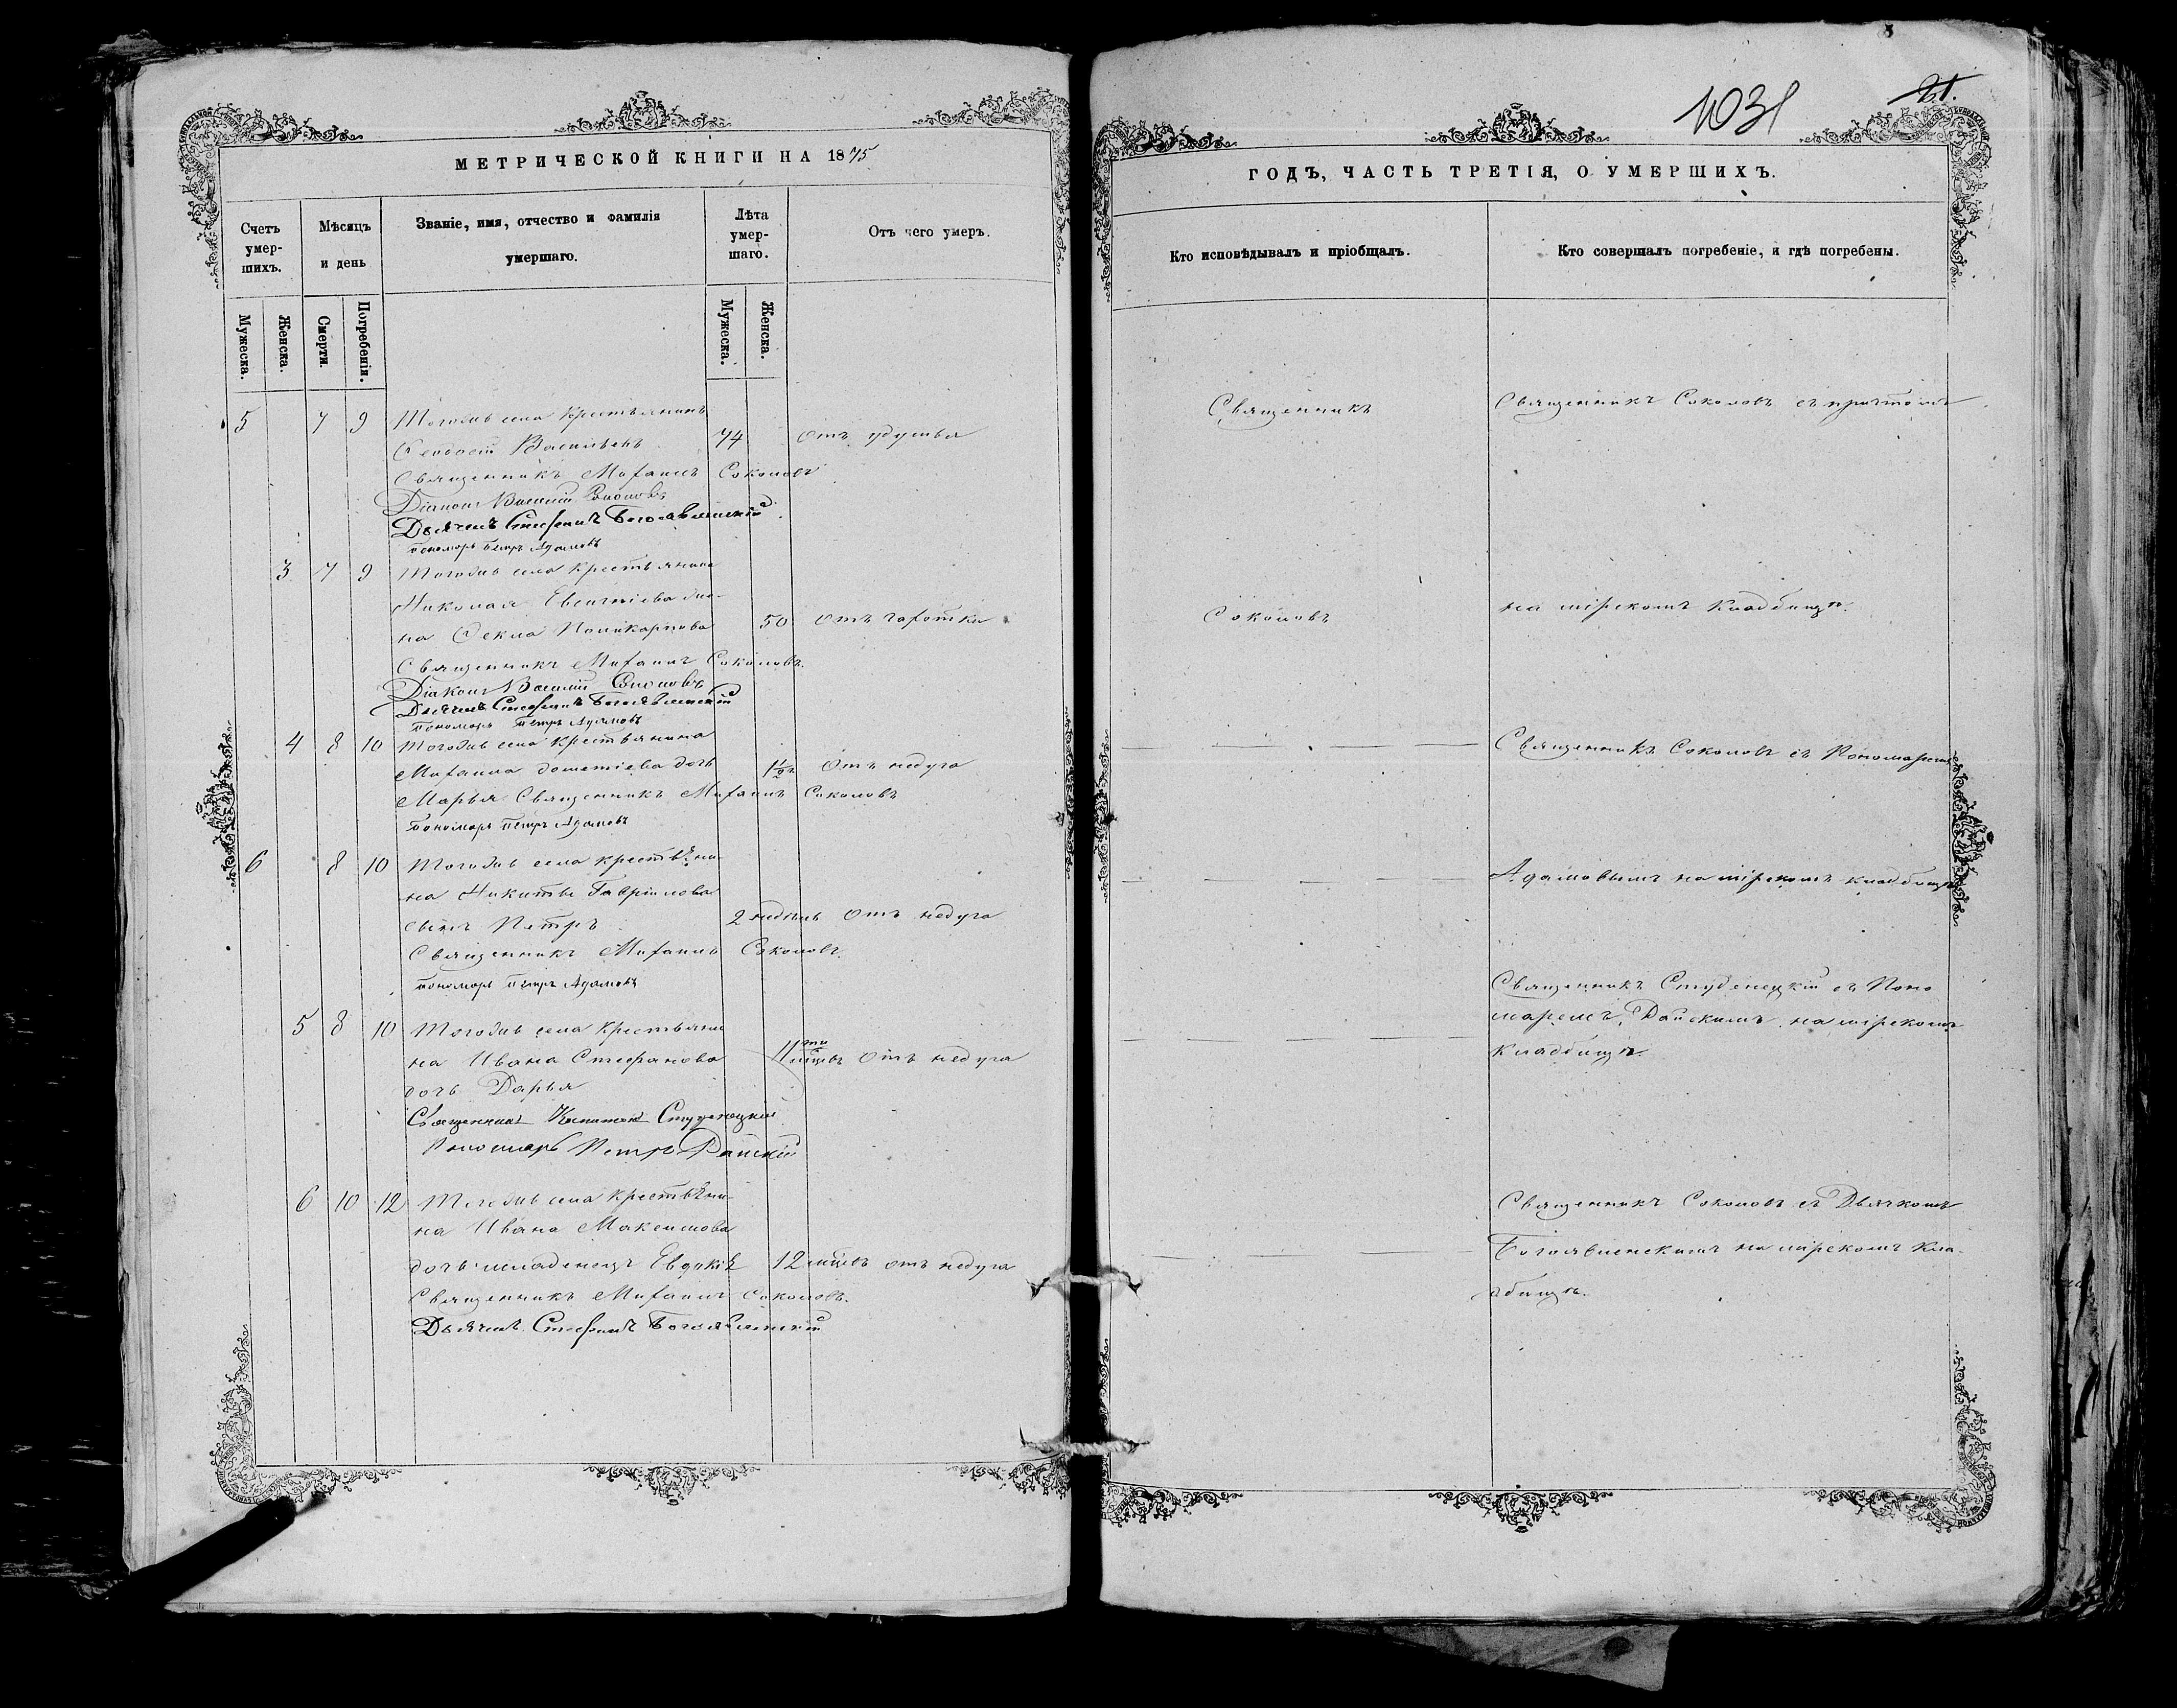 МЕТРИЧЕСКОЙ КНИГИ НА 1875
Счетъ умер-шихъ.
Мѣсяцъ и день
Званіе, имя, отчество и фамилія умершаго.
Лѣта умер-шаго.
Отъ чего умеръ.
Мужеска.
Женска.
Смерти.
Погребенія.
Мужеска.
Женска.
5 7 9 Тогожъ села крестьянинъ
Васильевъ 74 отъ удушья
Священникъ Михаилъ Соколовъ
Діаконъ Василій
Дьячекъ Стефанъ Богоявленскій
Пономарь Петръ Адамовъ
3 7 9 Тогожъ села крестьянина
Николая Евсигніева же-
на Ѳекла Поликарпова 50 отъ чахотки
Священникъ Михаилъ Соколовъ
Діаконъ Василій
Дьячекъ Стефанъ Богоявленскій
Пономарь Петръ Адамовъ
4 8 10 Тогожъ села крестьянина
Михаила Дометіева дочь 1½ г. отъ недуга
Марья Священникъ Михаилъ Соколовъ
Пономарь Петръ Адамовъ
6 8 10 Тогожъ села крестьяни-
на Никиты Гаврилова
сынъ Петръ 2 недѣль отъ недуга
Священникъ Михаилъ Соколовъ.
Пономарь Петръ Адамовъ
5 8 10 Тогожъ села крестьяни
на Ивана Стефанова 11ти мцевъ отъ недуга
дочь Дарья
Священникъ Капитонъ Студенецкій
Пономарь Петръ Райскій
6 10 12 Тогожъ села крестьяни-
на Ивана Максимова
дочь младенецъ Евдокія 12 мцевъ отъ недуга
Священникъ Михаилъ Соколовъ.
Дьячекъ Стефанъ Богоявленскій
1031
21.
ГОДЪ, ЧАСТЬ ТРЕТІЯ, О УМЕРШИХЪ.
Кто исповѣдывалъ и пріобщалъ.
Кто совершалъ погребеніе, и гдѣ погребены.
Священникъ
Священникъ Соколовъ съ причтомъ
Соколовъ
на мірскомъ кладбищѣ.
Священникъ Соколовъ съ Пономаремъ
Адамовымъ на мірскомъ кладбищѣ
Священникъ Студенецкій съ Поно
маремъ Райскимъ на мірскомъ
кладбищѣ.
Священникъ Соколовъ съ Дьячкомъ
Богоявленскимъ на мірскомъ кла-
дбищѣ.